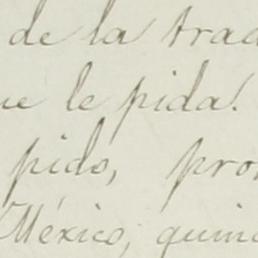 de la trad
ue le pida.
pido, pro
México, quin